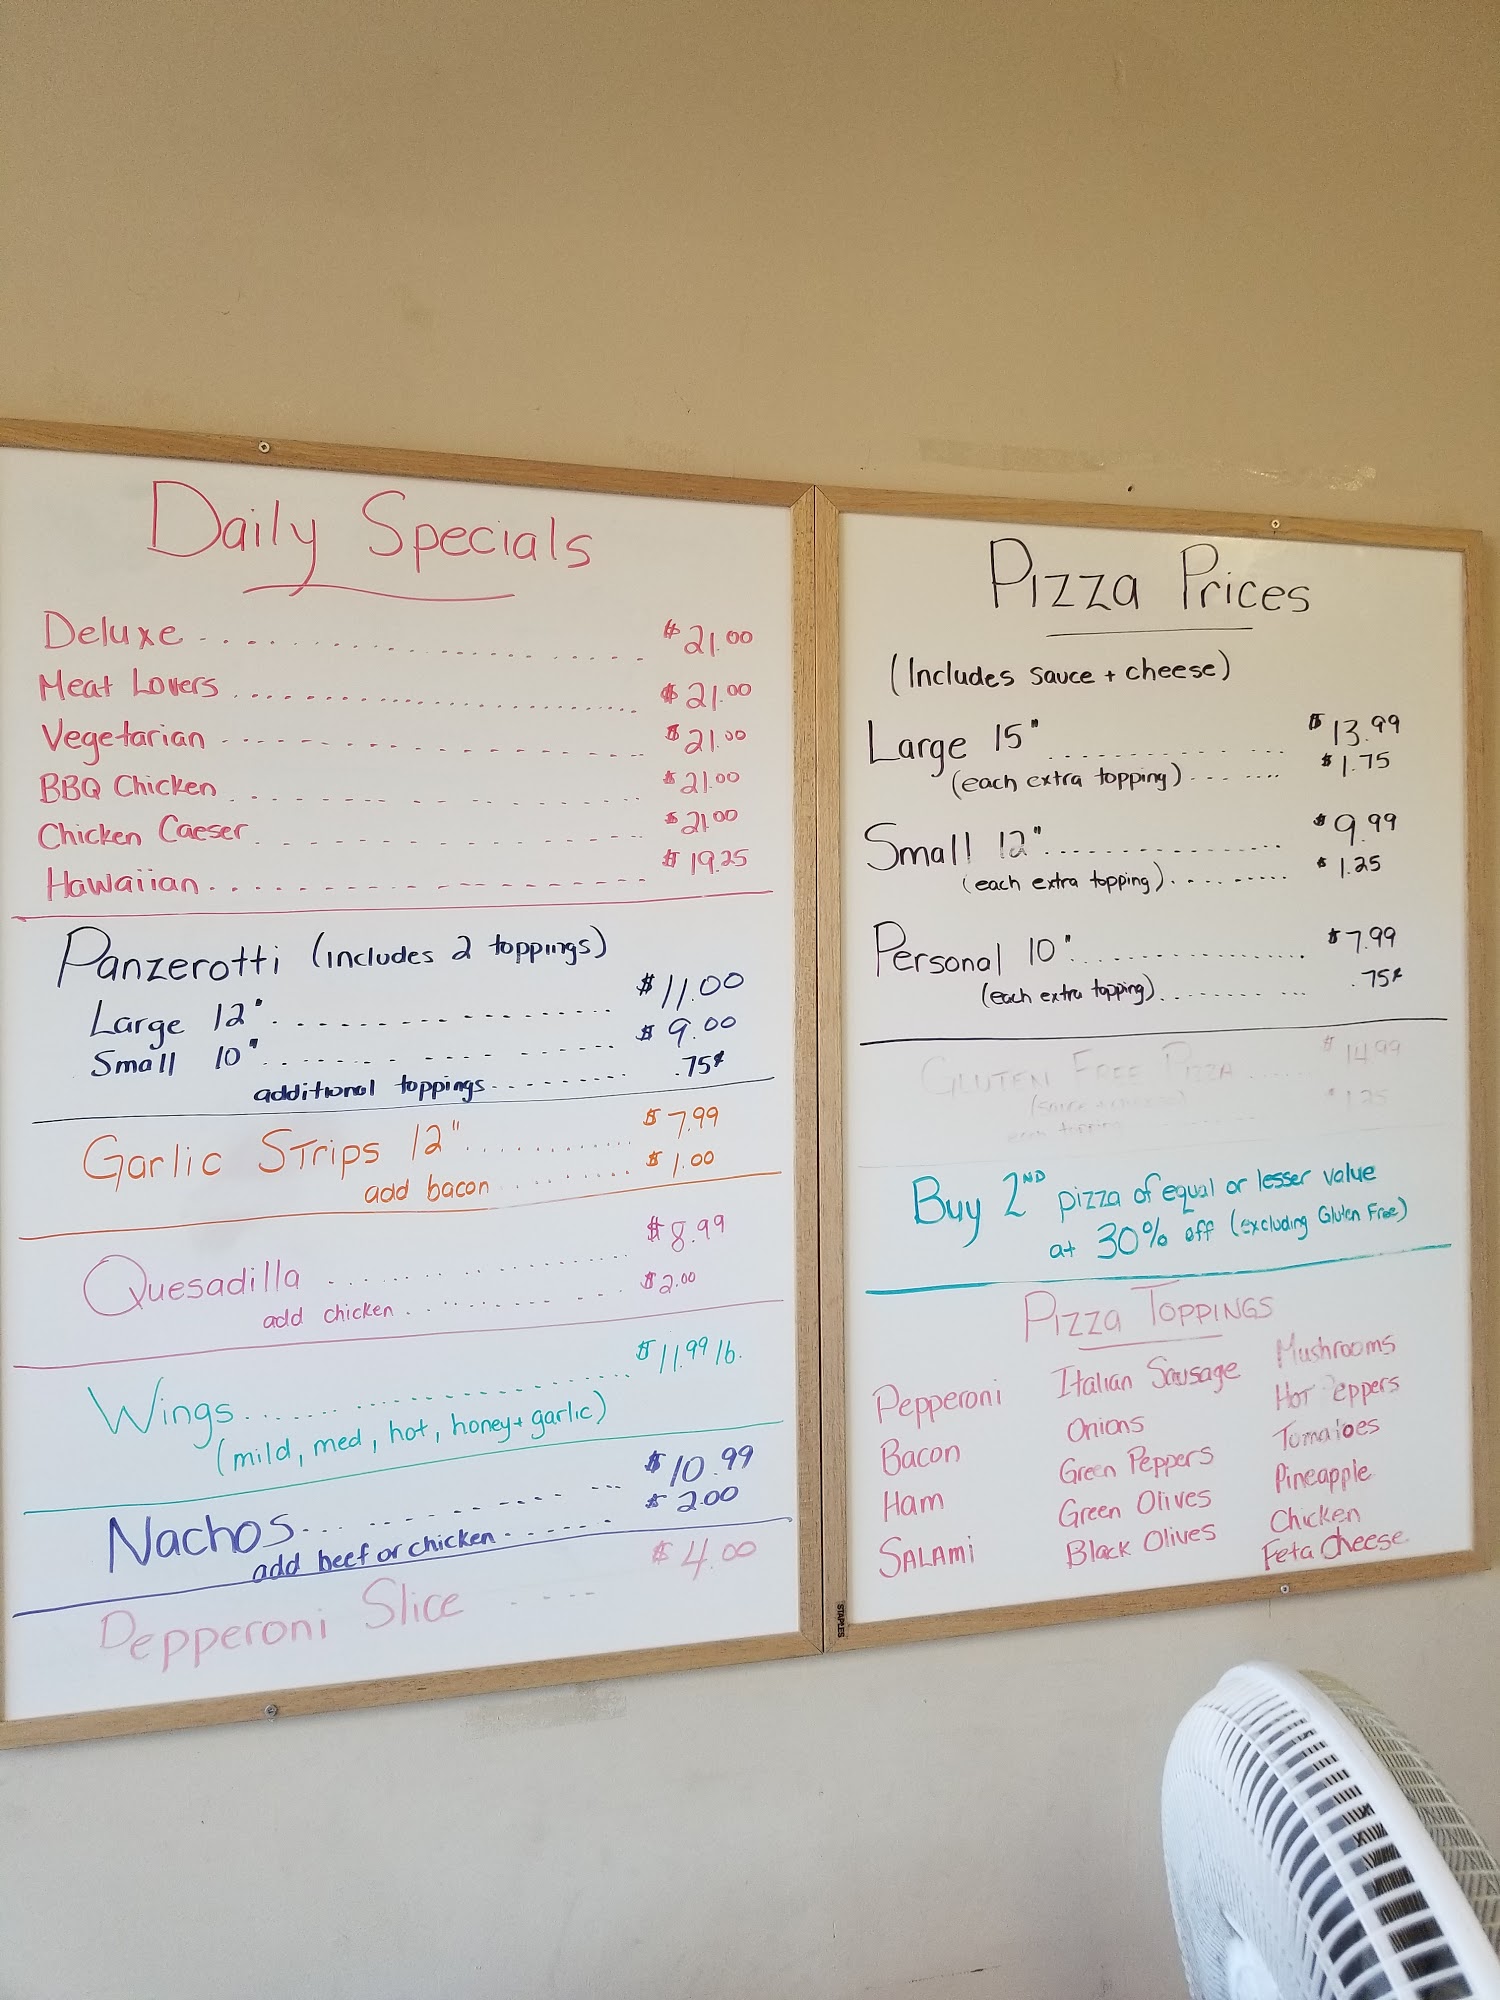 Daily Specials
Deluxe $21.00
Meat Lovers $21.00
Vegetarian $21.00
BBQ Chicken $21.00
Chicken Caeser $21.00
Hawaiian $19.25
Panzerotti (includes 2 toppings)
Large 12" $11.00
Small 10" $9.00
additional toppings .75¢
Garlic Strips 12" $7.99
add bacon $1.00
Quesadilla $8.99
add chicken $2.00
Wings $11.99 lb.
(mild, med, hot, honey + garlic)
Nachos $10.99
add beef or chicken $2.00
Pepperoni Slice $4.00
Pizza Prices
(Includes sauce + cheese)
Large 15" $13.99
(each extra topping) $1.75
Small 12" $9.99
(each extra topping) $1.25
Personal 10" $7.99
(each extra topping) .75¢
GLUTEN FREE PIZZA $14.99
each topping $1.25
Buy 2ND pizza of equal or lesser value
at 30% off (excluding Gluten Free)
Pizza Toppings
Pepperoni
Bacon
Ham
SALAMi
Italian Sausage
Onions
Green Peppers
Green Olives
Black Olives
Mushrooms
Hot Peppers
Tomatoes
Pineapple
Chicken
Feta Cheese
STAPLES